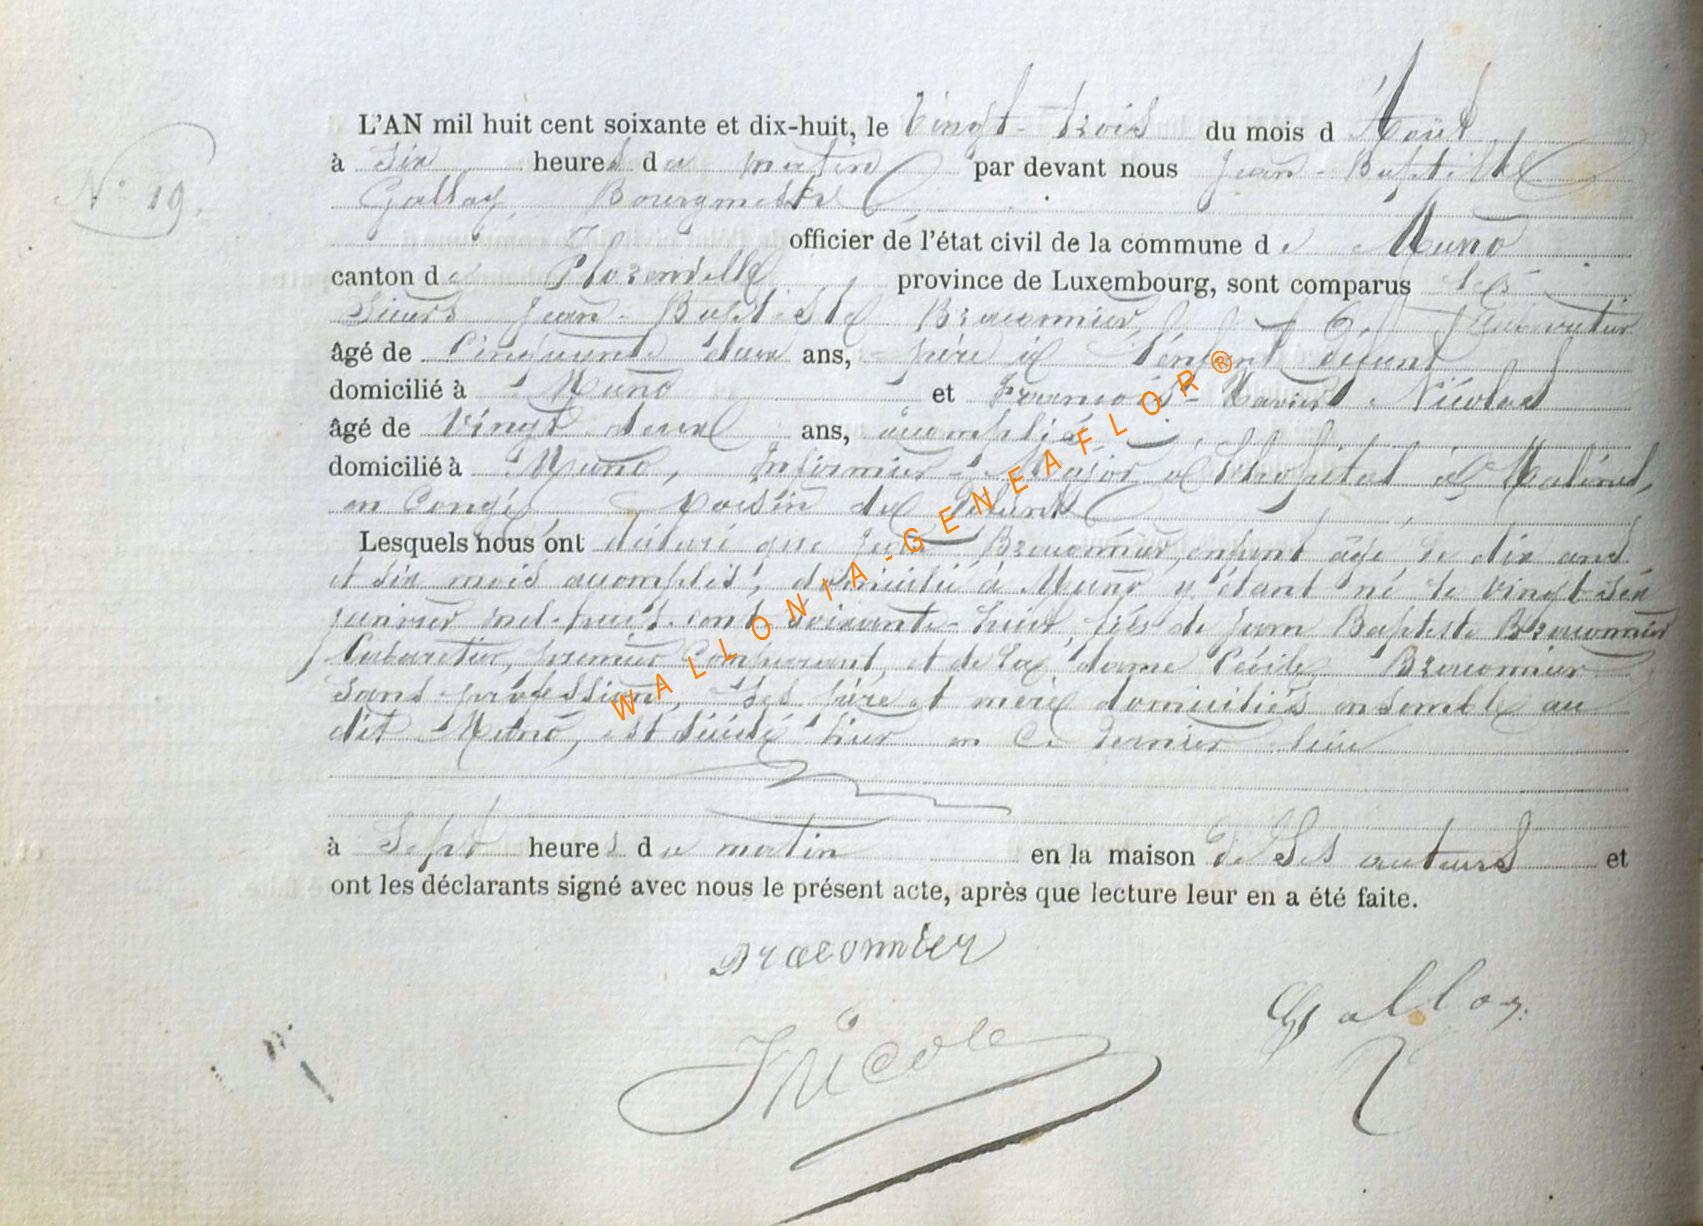 N° 19.
L'AN mil huit cent soixante et dix-huit, le Vingt-trois du mois d'Août
à Six heures du matin par devant nous Jean-Baptiste
Gallay, Bourgmestre
officier de l'état civil de la commune de Muno
canton de Florenville province de Luxembourg, sont comparus les
Sieurs Jean-Baptiste Braconnier, Cabaretier
âgé de Cinquante deux ans, père de l'enfant défunt
domicilié à Muno et François-Xavier Nicolas
âgé de Vingt deux ans, accomplis
domicilié à Muno, Infirmier-Major à l'hopital de Malines,
en Congé, voisin du défunt
Lesquels nous ont déclaré que Jean Braconnier, enfant âgé de dix ans
et six mois accomplis, domicilié à Muno y étant né le vingt-six
janvier mil-huit-cent-soixante-huit, fils de Jean Baptiste Braconnier
Cabaretier, premier Comparant, et de la dame Cécile Braconnier
sans profession, ses père et mère domiciliés ensemble au
dit Muno, est décédé hier en ce dernier lieu
à Sept heures du matin en la maison de Ses auteurs et
ont les déclarants signé avec nous le présent acte, après que lecture leur en a été faite.
Braconnier
Gallay
WALLONIA-GENEAFLOR®